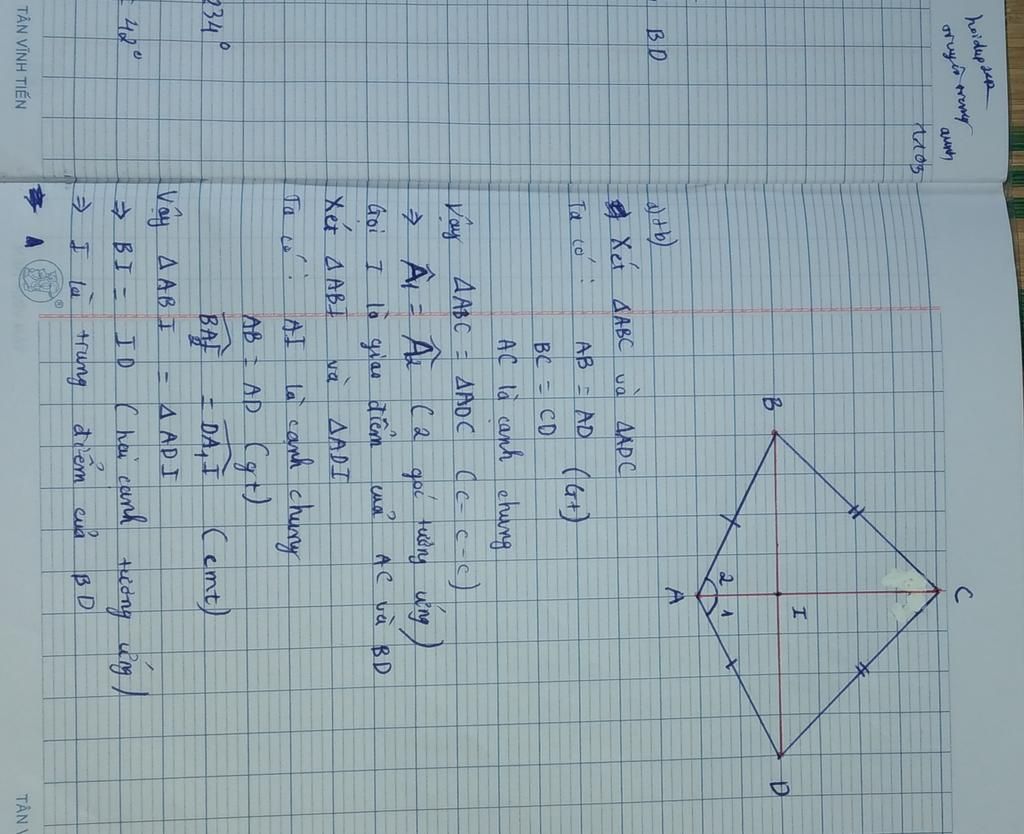 hoidap247
truyentrangannh
1103
BD
234°
= 42°
TÂN VĨNH TIẾN
B
C
2 1
I
A
D
a)+b)
Xét ΔABC và ΔADC
Ta có: AB = AD (Gt)
BC = CD
AC là cạnh chung
Vậy ΔABC = ΔADC (c-c-c)
⇒ Â₁ = Â₂ (2 góc tường ứng)
Gọi I là giao điểm của AC và BD
Xét ΔABI và ΔADI
Ta có: AI là cạnh chung
AB = AD (gt)
BA₂I = DA₁I (cmt)
Vậy ΔABI = ΔADI
⇒ BI = ID (hai cạnh tương ứng)
⇒ I là trung điểm của BD
TÂN V